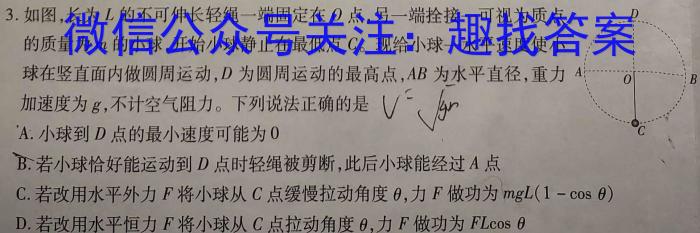 3. 如图,长为 L 的不可伸长轻绳一端固定在 O 点,另一端拴接一可视为质点
的质量为 m 的小球,开始小球静止在最低点 C,现给小球一水平速度使小
微信公众号关注：趣找答案
球在竖直面内做圆周运动,D 为圆周运动的最高点,AB 为水平直径,重力
加速度为 g,不计空气阻力。下列说法正确的是
V=√gr
A. 小球到 D 点的最小速度可能为 0
B. 若小球恰好能运动到 D 点时轻绳被剪断,此后小球能经过 A 点
C. 若改用水平外力 F 将小球从 C 点缓慢拉动角度 θ,力 F 做功为 mgL(1－cos θ)
D. 若改用水平恒力 F 将小球从 C 点拉动角度 θ,力 F 做功为 FLcos θ
D
A
O
B
C